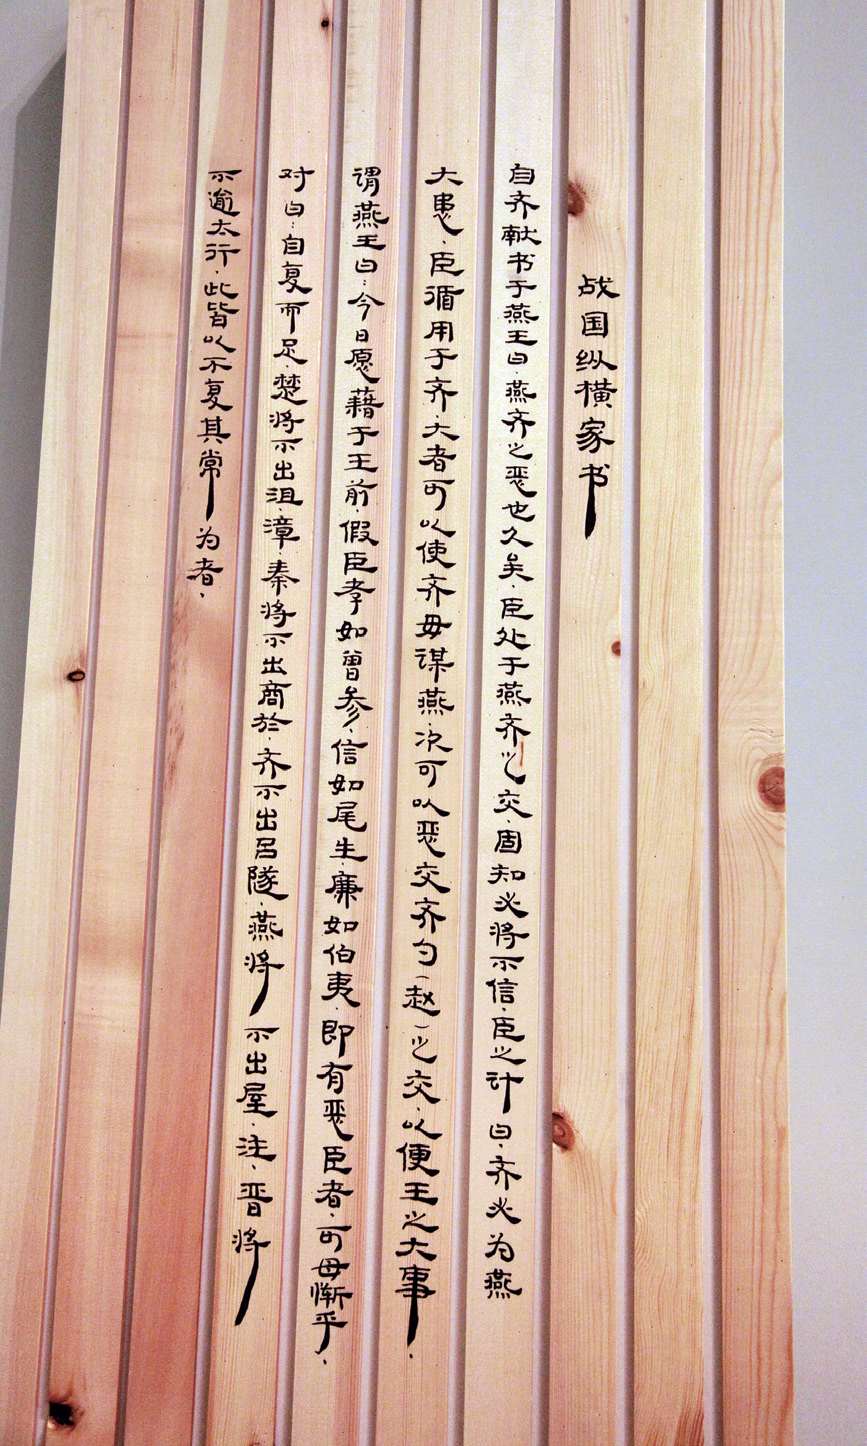 战国纵横家书
自齐献书于燕王曰：燕齐之恶也久矣．臣处于燕齐之交．固知必将不信．臣之计曰．齐必为燕
大患．臣循用于齐．大者可以使齐毋谋燕．次可以恶交齐勺（赵）之交．以便王之大事．
谓燕王曰：今日愿藉于王前．假臣孝如曾参．信如尾生．廉如伯夷．即有恶臣者．可毋惭乎．
对曰：自复而足．楚将不出沮．漳．秦将不出商於．齐不出吕隧．燕将不出屋．注．晋将
不逾太行．此皆以不复其常为者．